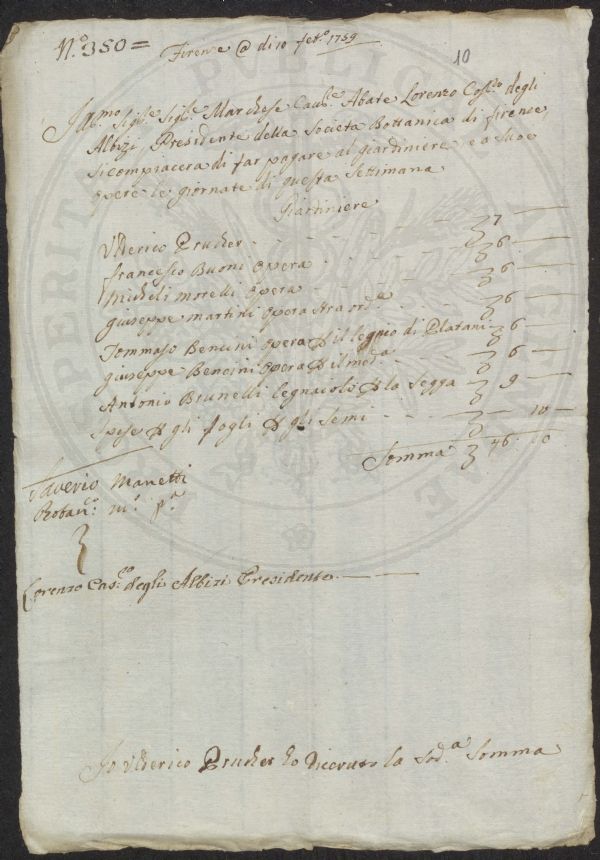 N.º 350 =
Firenze @ di 10 feb.º 1759
10
Ill.mo Sig.re Sig.re Marchese Cav.re Abate Lorenzo Cos.mo degli
Albizi Presidente della Societa Bottanica di firenze
Si compiacera di far pagare al giardiniere e a Sue
opere le giornate di questa Settimana
Giardiniere
Ulderico Prucher - - - - - - 7 —
francesco Buoni Opera - - - 6 —
micheli morelli Opera - - - 6 —
giuseppe martini Opera straord.a 6 —
Tommaso Bencini Opera p il legnio di Platani 6 —
giuseppe Bencini Opera p il med.º 6 —
Antonio Brunelli legnaiolo p la Segga 9 —
Spese p gli fogli p gli Semi - - — 10 —
Somma 46. 10
Saverio Manetti
Botan.co m.º p.a
Lorenzo Cas.co degli Albizi Presidente
Io Ulderico Prucher ho riceuto la Sod.a Somma